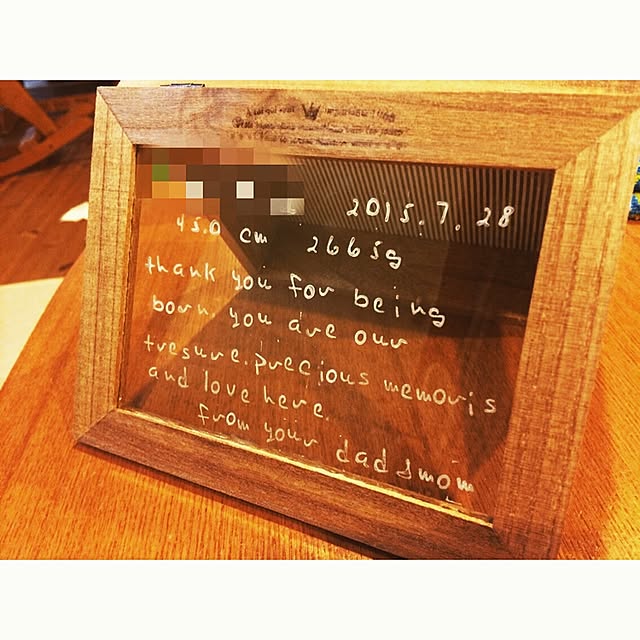 2015.7.28
45.0 cm 2665g
thank you for being
born. you are our
tresure. precious memoris
and love here.
from your dad & mom